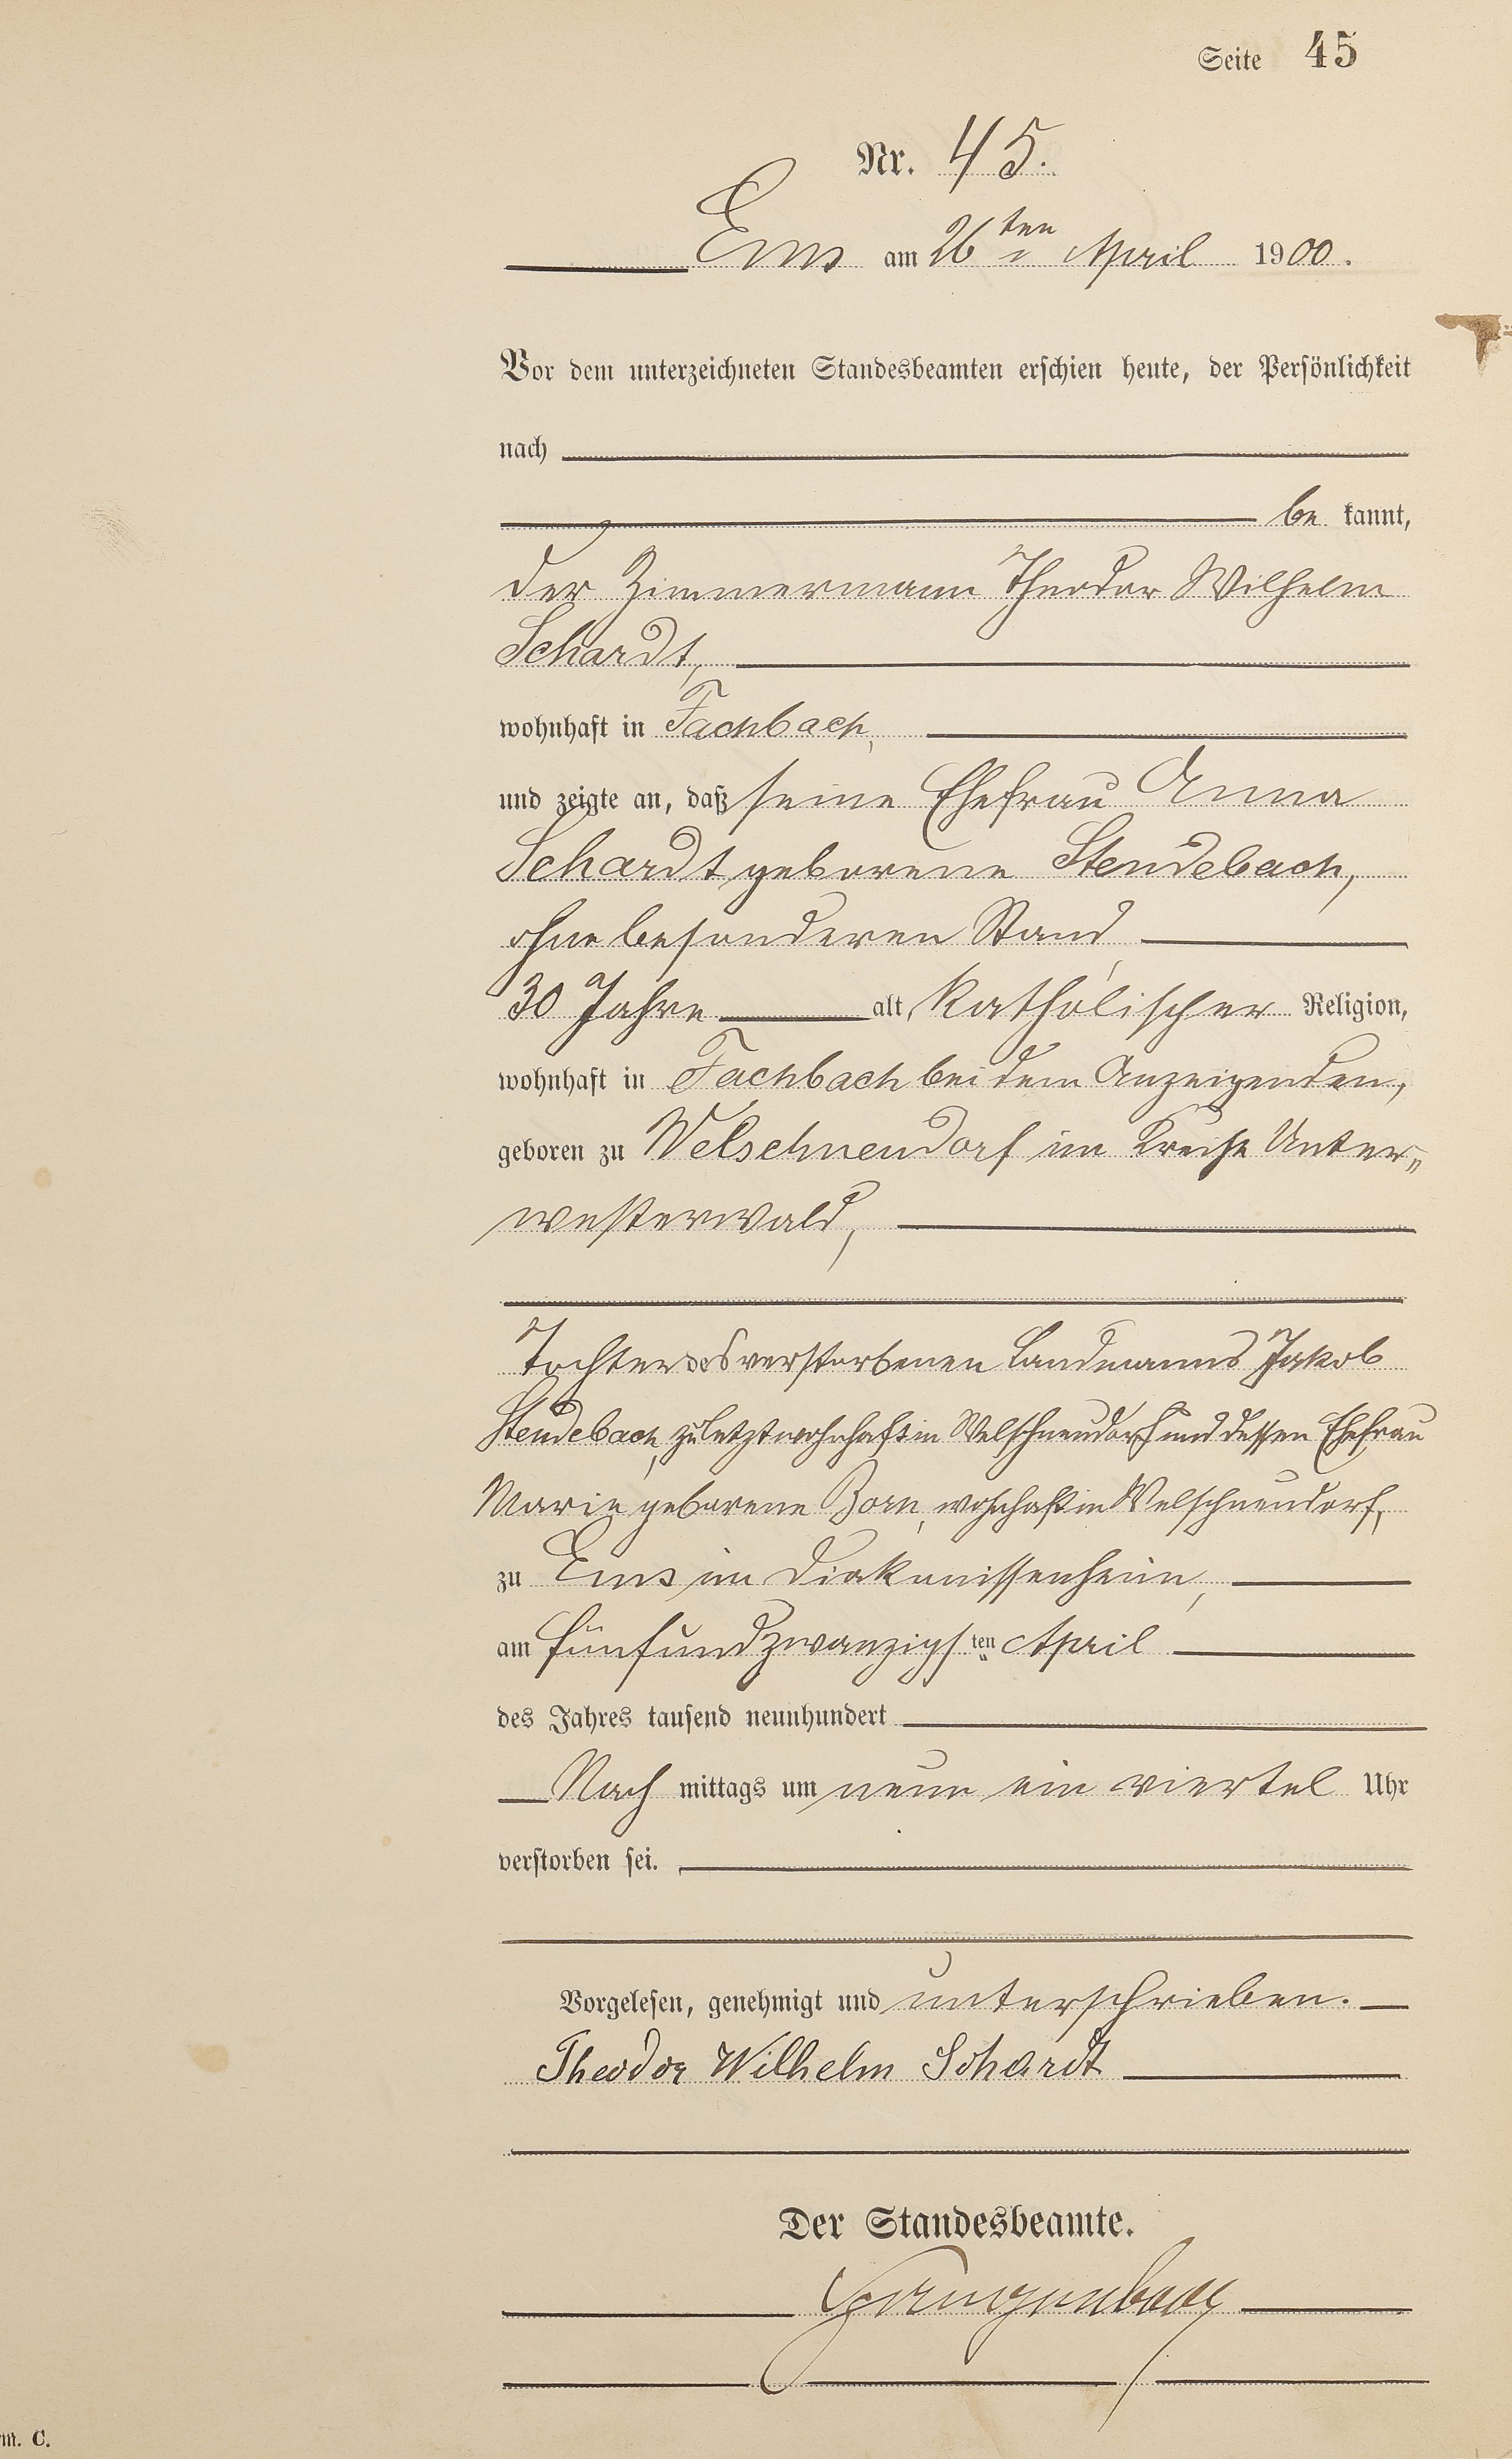 Seite 45
Nr. 45.
Ems am 26ten April 1900.
Vor dem unterzeichneten Standesbeamten erschien heute, der Persönlichkeit
nach
be kannt,
der Zimmermann Theodor Wilhelm
Schardt,
wohnhaft in Fachbach,
und zeigte an, daß seine Ehefrau Anna
Schardt geborene Stendebach,
ohne besonderen Stand,
30 Jahre alt, katholischer Religion,
wohnhaft in Fachbach bei dem Anzeigenden,
geboren zu Welschneudorf im Kreise Unter„
westerwald,
Tochter des verstorbenen Landmanns Jakob
Stendebach, zuletzt wohnhaft in Welschneudorf und dessen Ehefrau
Marie geborene Born, wohnhaft in Welschneudorf,
zu Ems im Diakonissenheim,
am fünfundzwanzigsten April
des Jahres tausend neunhundert
Nach mittags um neun ein viertel Uhr
verstorben sei.
Vorgelesen, genehmigt und unterschrieben.
Theodor Wilhelm Schardt
Der Standesbeamte.
rm. C.